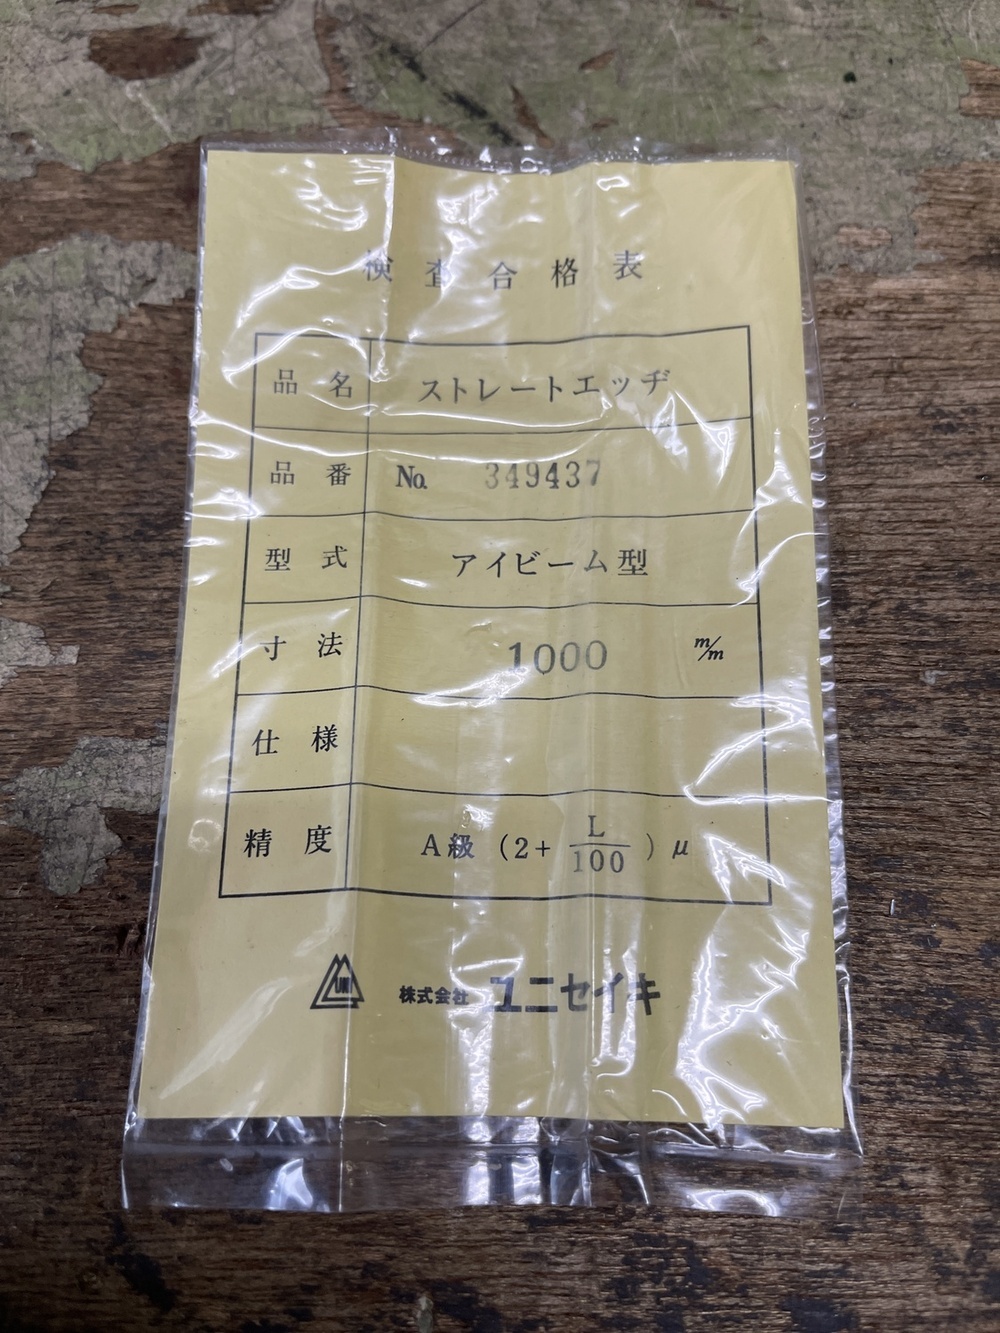 検査合格表
品名 ストレートエッヂ
品番 No. 349437
型式 アイビーム型
寸法 1000 m/m
仕様
精度 A級 (2+ L/100) μ
UNI 株式会社 ユニセイキ